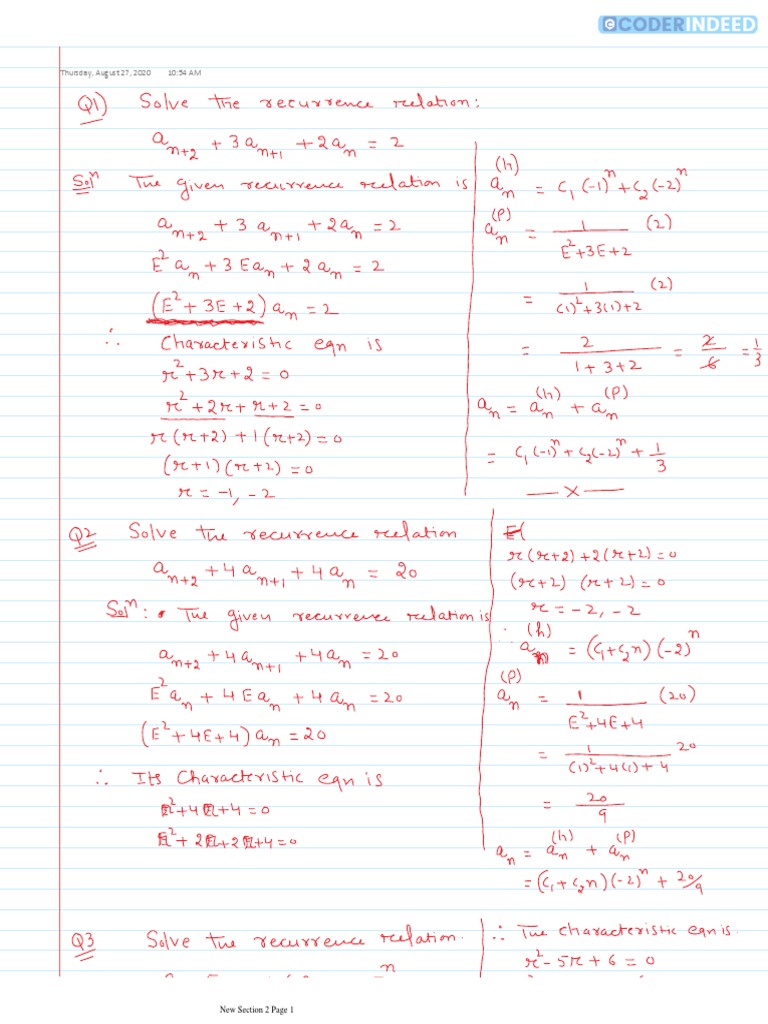 © CODERINDEED
Thursday, August 27, 2020 10:54 AM
Q1) Solve the recurrence relation:
a_{n+2} + 3a_{n+1} + 2a_n = 2
Solⁿ The given recurrence relation is
a_{n+2} + 3a_{n+1} + 2a_n = 2
E²a_n + 3Ea_n + 2a_n = 2
(E² + 3E + 2) a_n = 2
∴ Characteristic eqn is
r² + 3r + 2 = 0
r² + 2r + r + 2 = 0
r(r+2) + 1(r+2) = 0
(r+1)(r+2) = 0
r = -1, -2
a_n^{(h)} = C₁(-1)ⁿ + C₂(-2)ⁿ
a_n^{(P)} = 1/(E²+3E+2) (2)
= 1/((1)²+3(1)+2) (2)
= 2/(1+3+2) = 2/6 = 1/3
a_n = a_n^{(h)} + a_n^{(P)}
= C₁(-1)ⁿ + C₂(-2)ⁿ + 1/3
— X —
Q2 Solve the recurrence relation
a_{n+2} + 4a_{n+1} + 4a_n = 20
Solⁿ: The given recurrence relation is
a_{n+2} + 4a_{n+1} + 4a_n = 20
E²a_n + 4Ea_n + 4a_n = 20
(E² + 4E + 4) a_n = 20
∴ Its Characteristic eqn is
r² + 4r + 4 = 0
r² + 2r + 2r + 4 = 0
r(r+2) + 2(r+2) = 0
(r+2) (r+2) = 0
r = -2, -2
∴ a_n^{(h)} = (C₁ + C₂n)(-2)ⁿ
a_n^{(P)} = 1/(E²+4E+4) (20)
= 1/((1)²+4(1)+4) 20
= 20/9
a_n = a_n^{(h)} + a_n^{(P)}
= (C₁ + C₂n)(-2)ⁿ + 20/9
Q3 Solve the recurrence relation.
∴ The characteristic eqn is.
r² - 5r + 6 = 0
New Section 2 Page 1